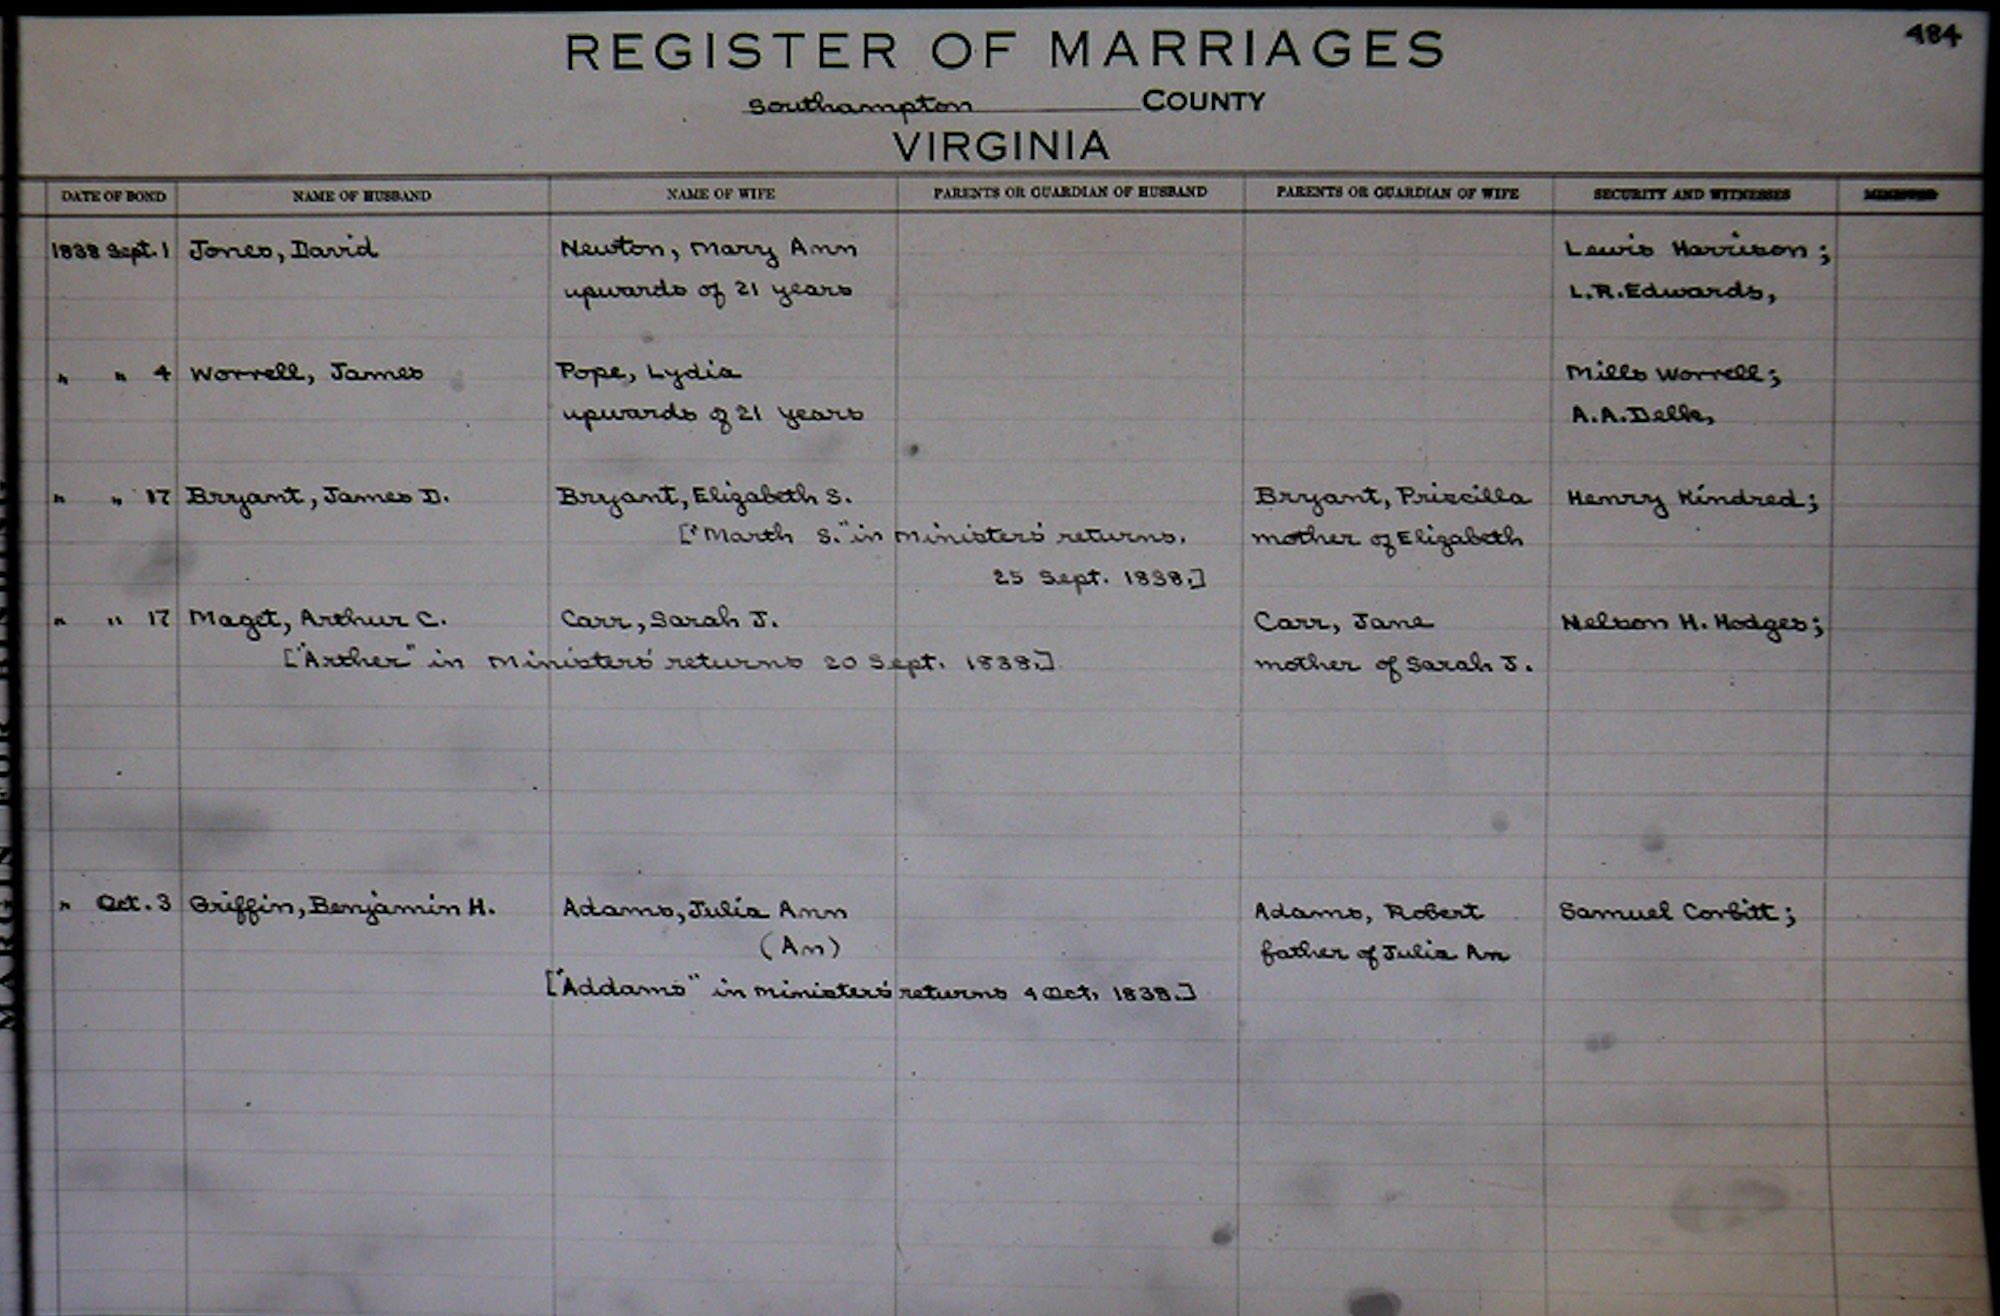 484
REGISTER OF MARRIAGES
Southampton COUNTY
VIRGINIA
DATE OF BOND NAME OF HUSBAND NAME OF WIFE PARENTS OR GUARDIAN OF HUSBAND PARENTS OR GUARDIAN OF WIFE SECURITY AND WITNESSES
1838 Sept. 1 Jones, David Newton, Mary Ann Lewis Harrison;
upwards of 21 years L.R. Edwards,
" " 4 Worrell, James Pope, Lydia Mills Worrell;
upwards of 21 years A.A. Delk,
" " 17 Bryant, James D. Bryant, Elizabeth S. Bryant, Priscilla Henry Kindred;
["Marth S." in ministers' returns. mother of Elizabeth
25 Sept. 1838.]
" " 17 Maget, Arthur C. Carr, Sarah J. Carr, Jane Nelson H. Hodges;
["Arther" in ministers' returns 20 Sept. 1838.] mother of Sarah J.
" Oct. 3 Griffin, Benjamin H. Adams, Julia Ann Adams, Robert Samuel Corbitt;
(An) father of Julia An
["Addams" in ministers' returns 4 Oct. 1838.]
MARGIN FOR BINDING